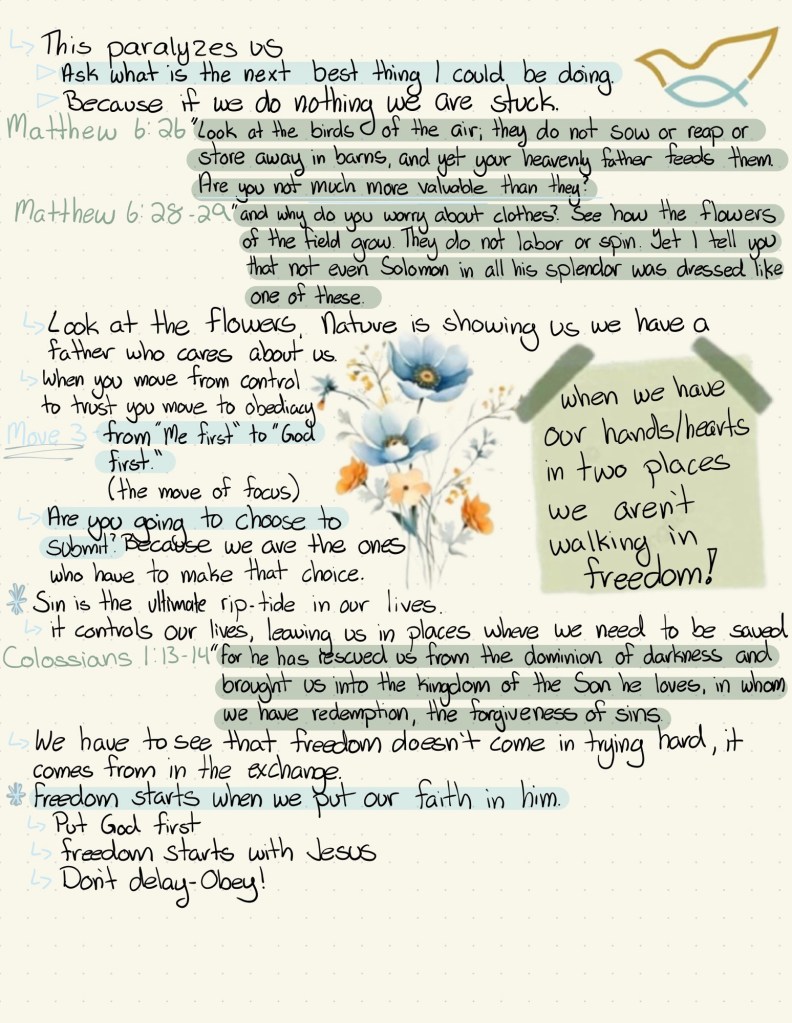 This paralyzes us
Ask what is the next best thing I could be doing.
Because if we do nothing we are stuck.
Matthew 6:26 "Look at the birds of the air; they do not sow or reap or
store away in barns, and yet your heavenly father feeds them.
Are you not much more valuable than they?
Matthew 6:28-29 "and why do you worry about clothes? See how the flowers
of the field grow. They do not labor or spin. Yet I tell you
that not even Solomon in all his splendor was dressed like
one of these.
Look at the flowers, Nature is showing us we have a
father who cares about us.
When you move from control
to trust you move to obediacy
Move 3 from "Me first" to "God
first."
(the move of focus)
Are you going to choose to
submit? Because we are the ones
who have to make that choice.
when we have
our hands/hearts
in two places
we aren't
walking in
freedom!
* Sin is the ultimate rip-tide in our lives.
it controls our lives, leaving us in places where we need to be saved
Colossians 1:13-14 "for he has rescued us from the dominion of darkness and
brought us into the kingdom of the Son he loves, in whom
we have redemption, the forgiveness of sins.
We have to see that freedom doesn't come in trying hard, it
comes from in the exchange.
* freedom starts when we put our faith in him.
Put God first
freedom starts with Jesus
Don't delay-Obey!